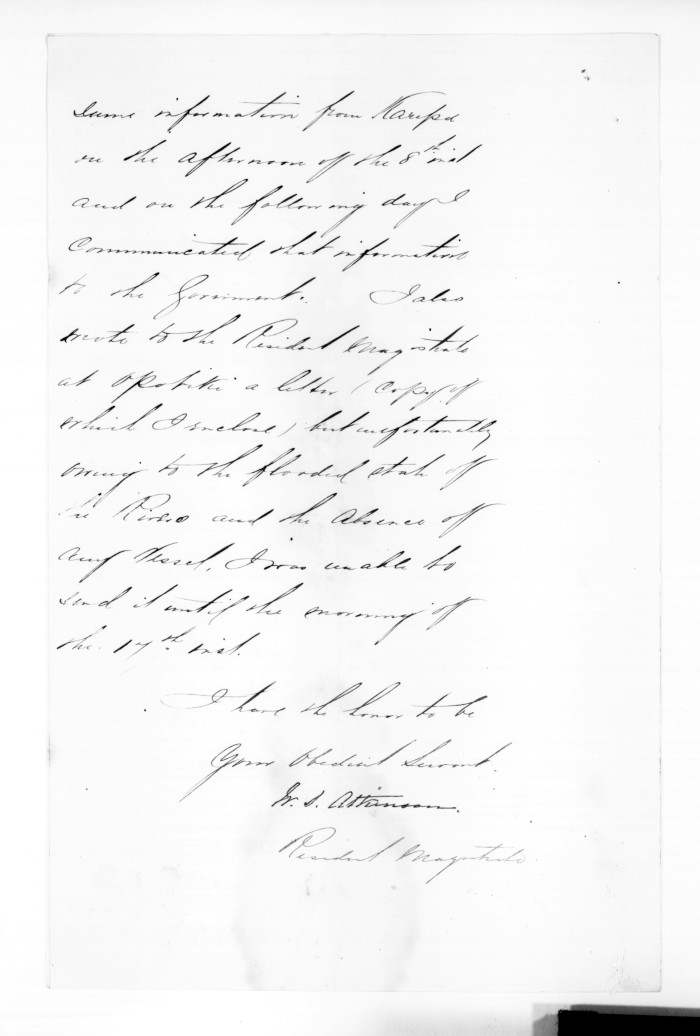 same information from Karepa
on the afternoon of the 8th inst
and on the following day I
communicated that information
to the Government. I also
wrote to the Resident Magistrate
at Opotiki a letter (copy of
which I enclose) but unfortunately
owing to the flooded state of
the Rivers and the absence of
any Vessel, I was unable to
send it until the morning of
the 17th inst.
I have the honor to be
Your Obedient Servant.
W. S. Atkinson.
Resident Magistrate